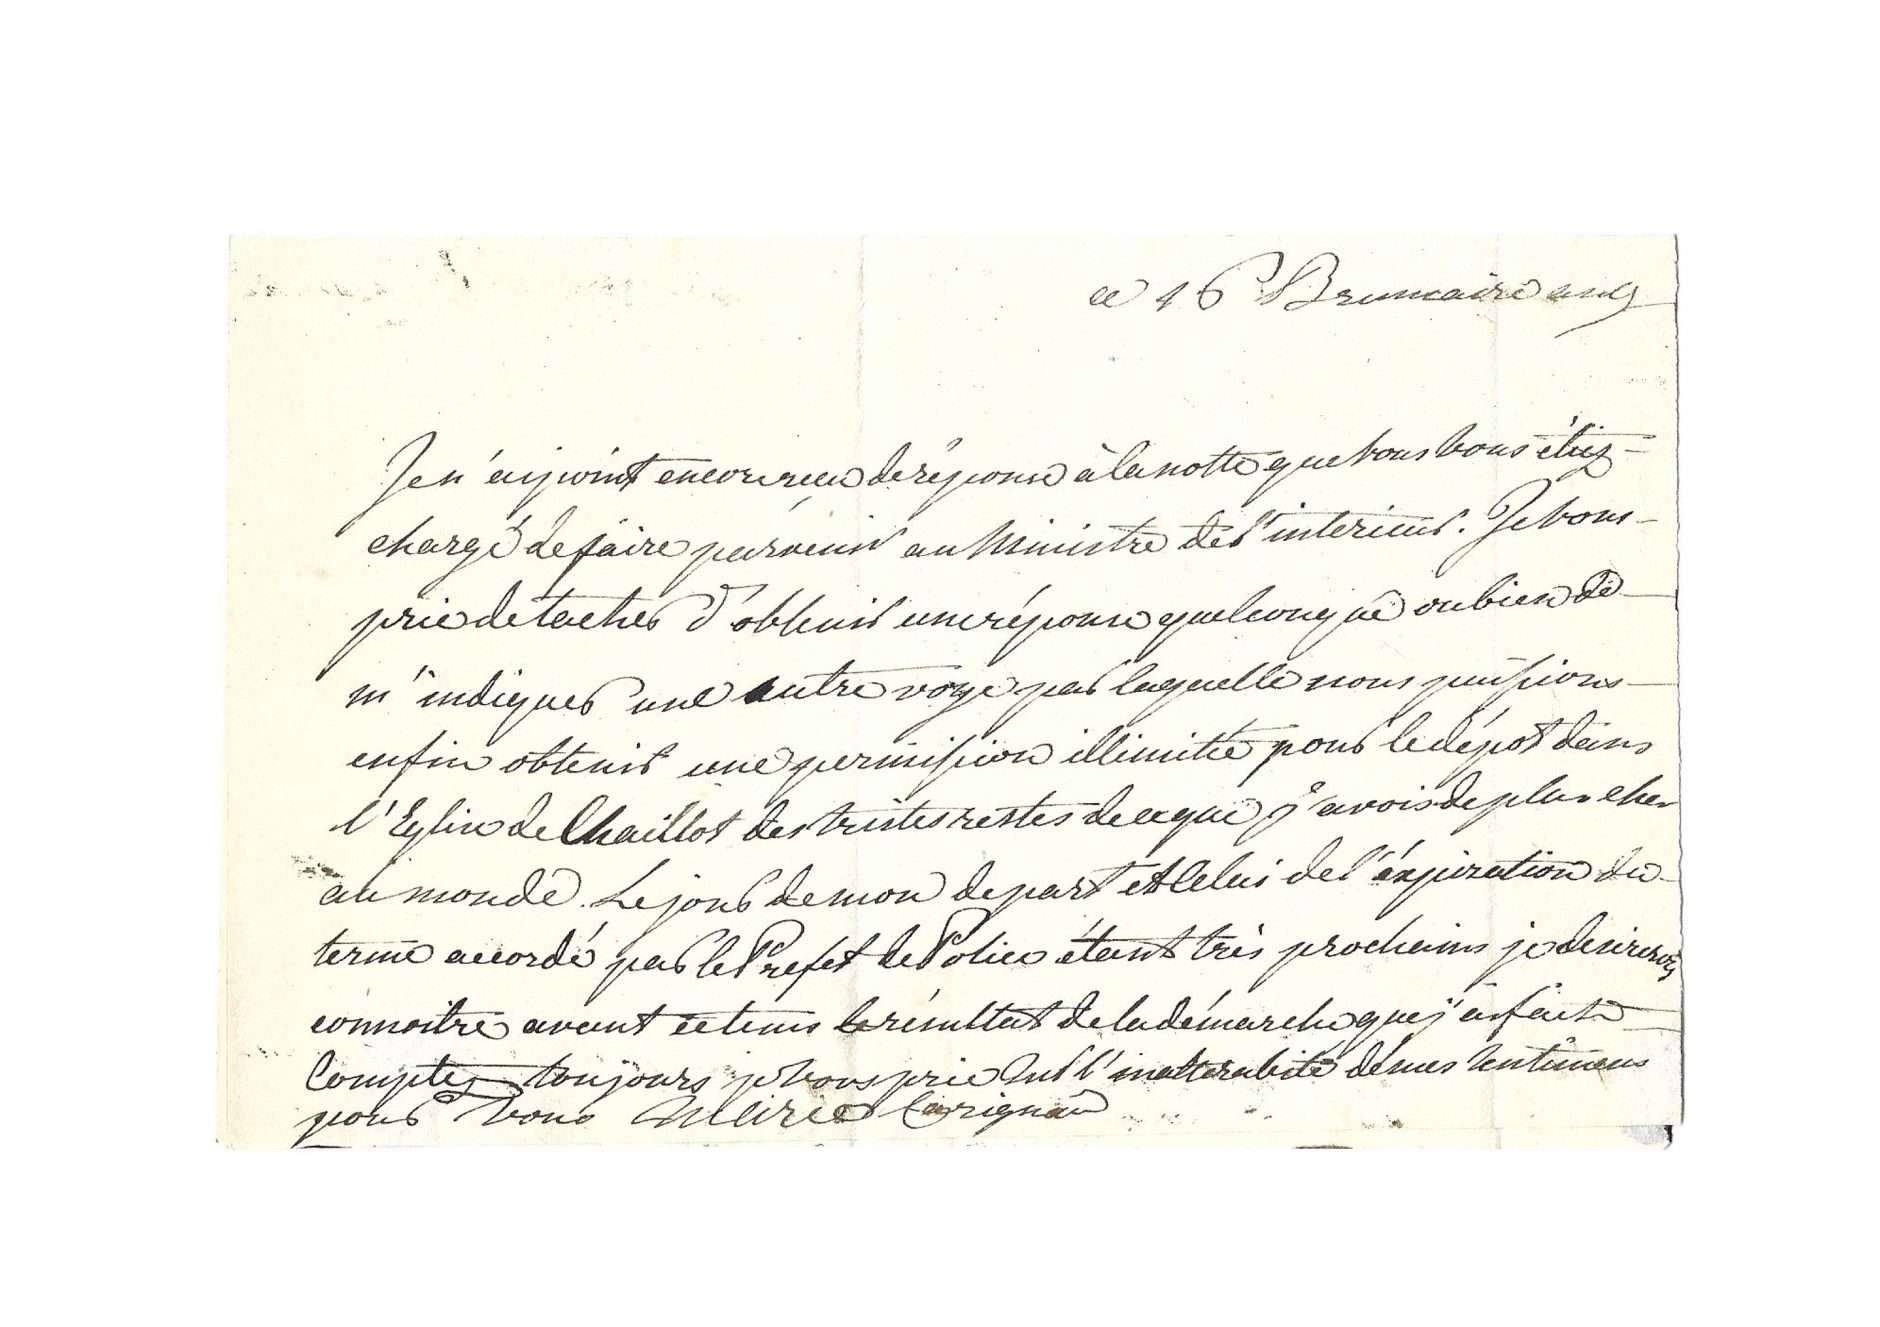 ce 16 Brumaire an 9
Je n'ai point encore reçu de réponse à la notte que vous vous étiez
chargé de faire parvenir au Ministre de l'interieur. Je vous
prie de tacher d'obtenir une réponse quelconque ou bien de
m'indiquer une autre voye par laquelle nous puissions
enfin obtenir une permission illimitée pour le dépot dans
l'Eglise de Chaillot des tristes restes de ce que j'avois de plus cher
au monde. Le jour de mon depart et celui de l'éxpiration du
terme accordé par le Prefet de Police étant très prochains je desirerois
connoitre avant ce tems le résultat de la démarche que j'ai faite
Comptez toujours je vous prie sur l'inalterabilité de mes sentimens
pour vous Carignan